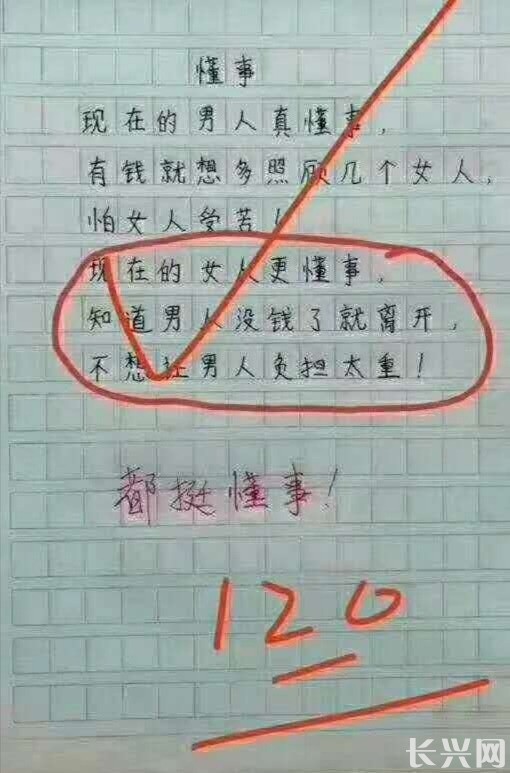 懂事
现在的男人真懂事，
有钱就想多照顾几个女人，
怕女人受苦！
现在的女人更懂事，
知道男人没钱了就离开，
不想让男人负担太重！
都挺懂事！
120
长兴网